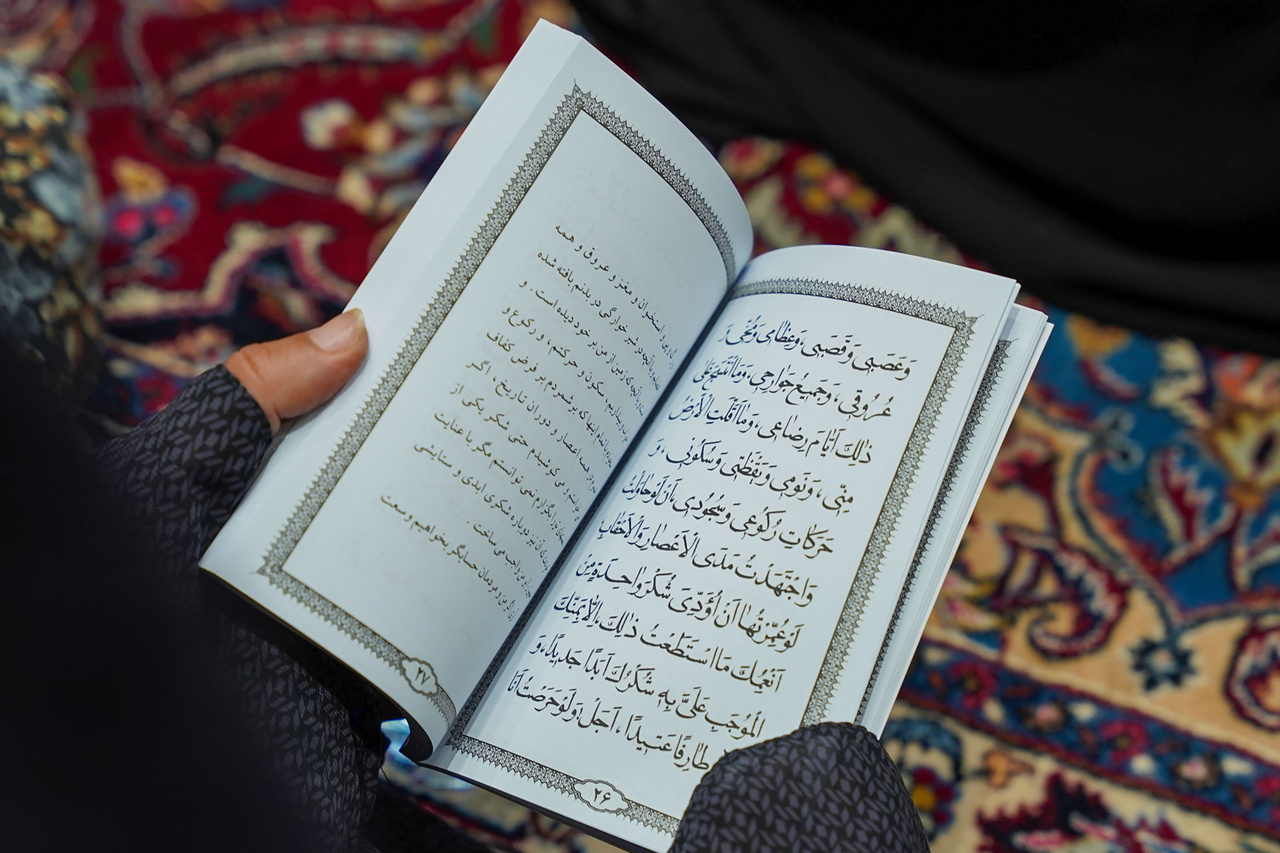 وَعَصَبِی وَقَصَبِی، وَعِظَامِی وَمُخِّی وَ
عُرُوقِی، وَجَمِیعُ جَوَارِحِی، وَمَا انْتَسَجَ عَلَىٰ
ذٰلِكَ اَیَّامَ رِضَاعِی، وَمَا اَقَلَّتِ الْاَرْضُ
مِنِّی، وَنَوْمِی وَیَقَظَتِی وَسُکُونِی، وَ
حَرَکَاتِ رُکُوعِی وَسُجُودِی، اَنْ لَوْ حَاوَلْتُ
وَاجْتَهَدْتُ مَدَى الْاَعْصَارِ وَالْاَحْقَابِ
لَوْ عُمِّرْتُهَا اَنْ اُؤَدِّیَ شُکْرَ وَاحِدَةٍ مِنْ
اَنْعُمِكَ مَا اسْتَطَعْتُ ذٰلِكَ، اِلَّا بِمَنِّكَ
الْمُوجَبِ عَلَیَّ بِهِ شُکْرُكَ اَبَدًا جَدِیدًا، وَ
طَارِفًا عَتِیدًا، اَجَلْ، وَلَوْ حَرَصْتُ اَنَا
۲۶
و استخوان و مغز و عروق و همه
در شیر خوارگی در بدنم بافته شده
زمین از من بر خود دیده است. و
سکون و حرکتم، و رکوع و
بشمردم بر فرض کفاف
اعصار و دوران تاریخ، اگر
می کوشیدم حتی شکر یکی از
نمی توانستم مگر با عنایت
دوباره شکری ابدی و ستایشی
می ساخت.
و مردمان حسابگر بخواهیم وسعت
۲۷